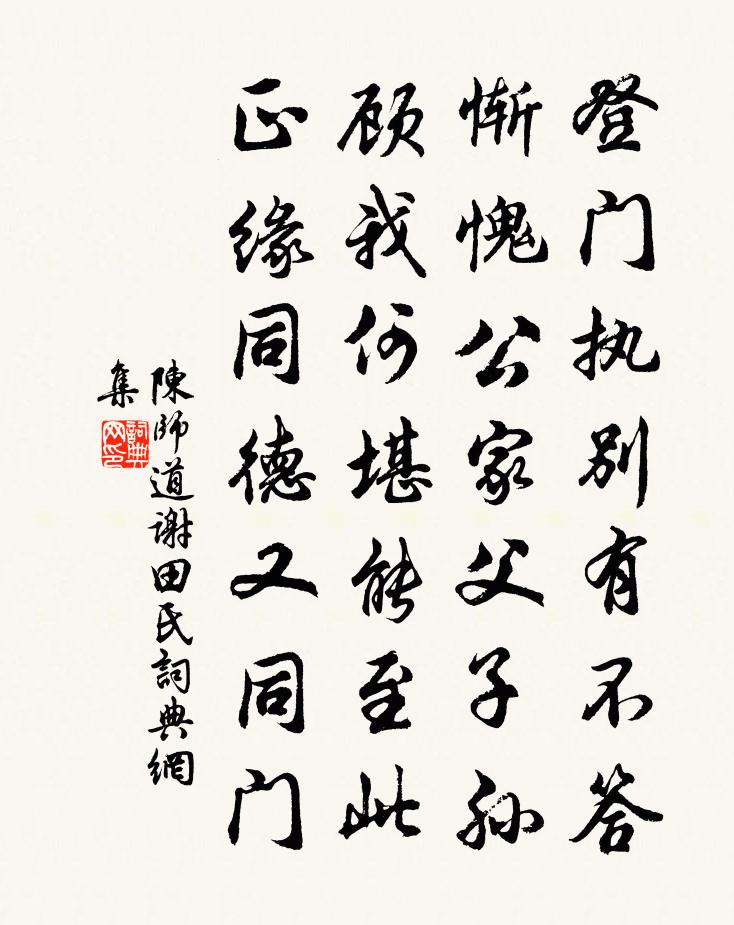 登门执别有不答
惭愧公家父子孙
顾我何堪能至此
正缘同德又同门
陳師道謝田民詞典網
集
詞典网印